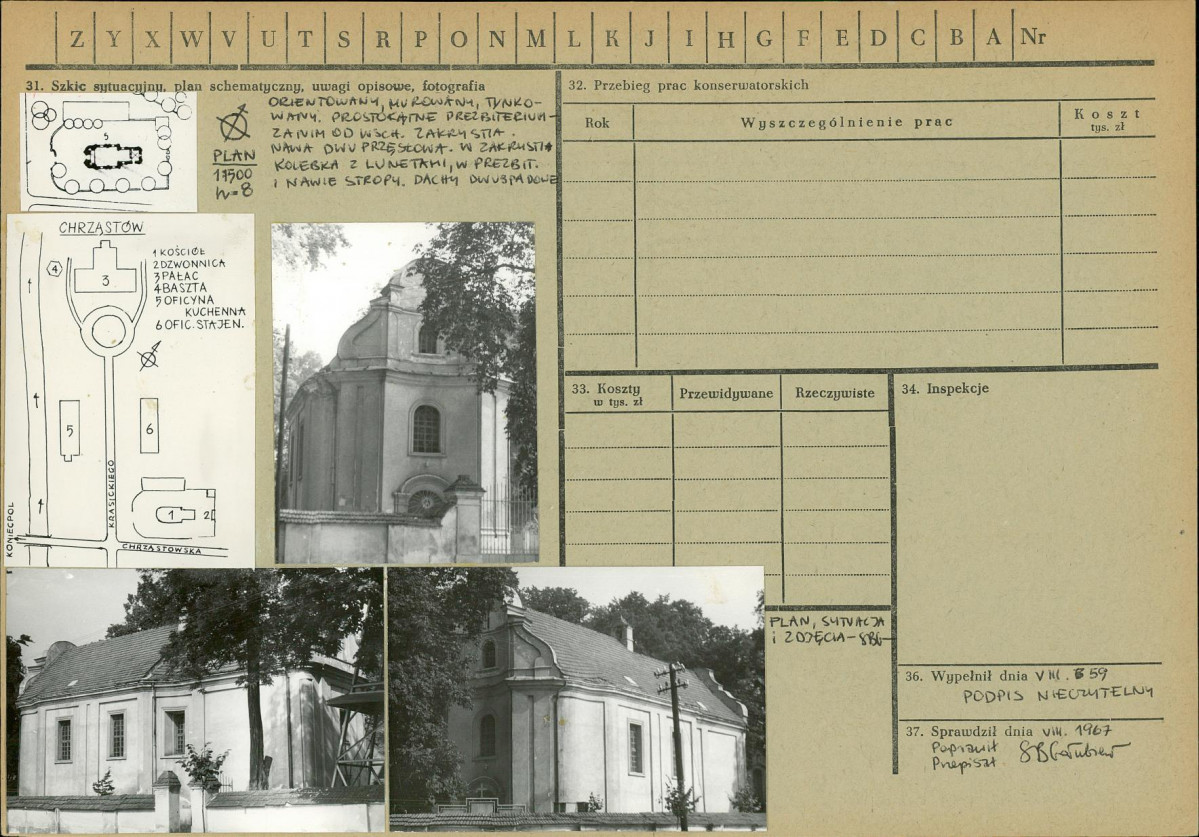 Z Y X W V U T S R P O N M L K J I H G F E D C B A Nr
31. Szkic sytuacyjny, plan schematyczny, uwagi opisowe, fotografia
5
PLAN
1:1500
n=8
ORIENTOWANY, MUROWANY, TYNKO-
WANY. PROSTOKĄTNE PREZBITERIUM-
ZA NIM OD WSCH. ZAKRYSTIA.
NAWA DWUPRZĘSŁOWA. W ZAKRYSTII
KOLEBKA Z LUNETAMI, W PREZBIT.
I NAWIE STROPY. DACHY DWUSPADOWE
CHRZĄSTÓW
1 KOŚCIÓŁ
2 DZWONNICA
3 PAŁAC
4 BASZTA
5 OFICYNA
KUCHENNA
6 OFIC. STAJEN.
4
3
5
6
1
2
KRASICKIEGO
KONIECPOL
CHRZĄSTOWSKA
32. Przebieg prac konserwatorskich
Rok
Wyszczególnienie prac
Koszt
tys. zł
33. Koszty
w tys. zł
Przewidywane
Rzeczywiste
34. Inspekcje
PLAN, SYTUACJA
i ZDJĘCIA-
36. Wypełnił dnia VIII. 59
PODPIS NIECZYTELNY
37. Sprawdził dnia VIII. 1967
Poprawił
Przepisał